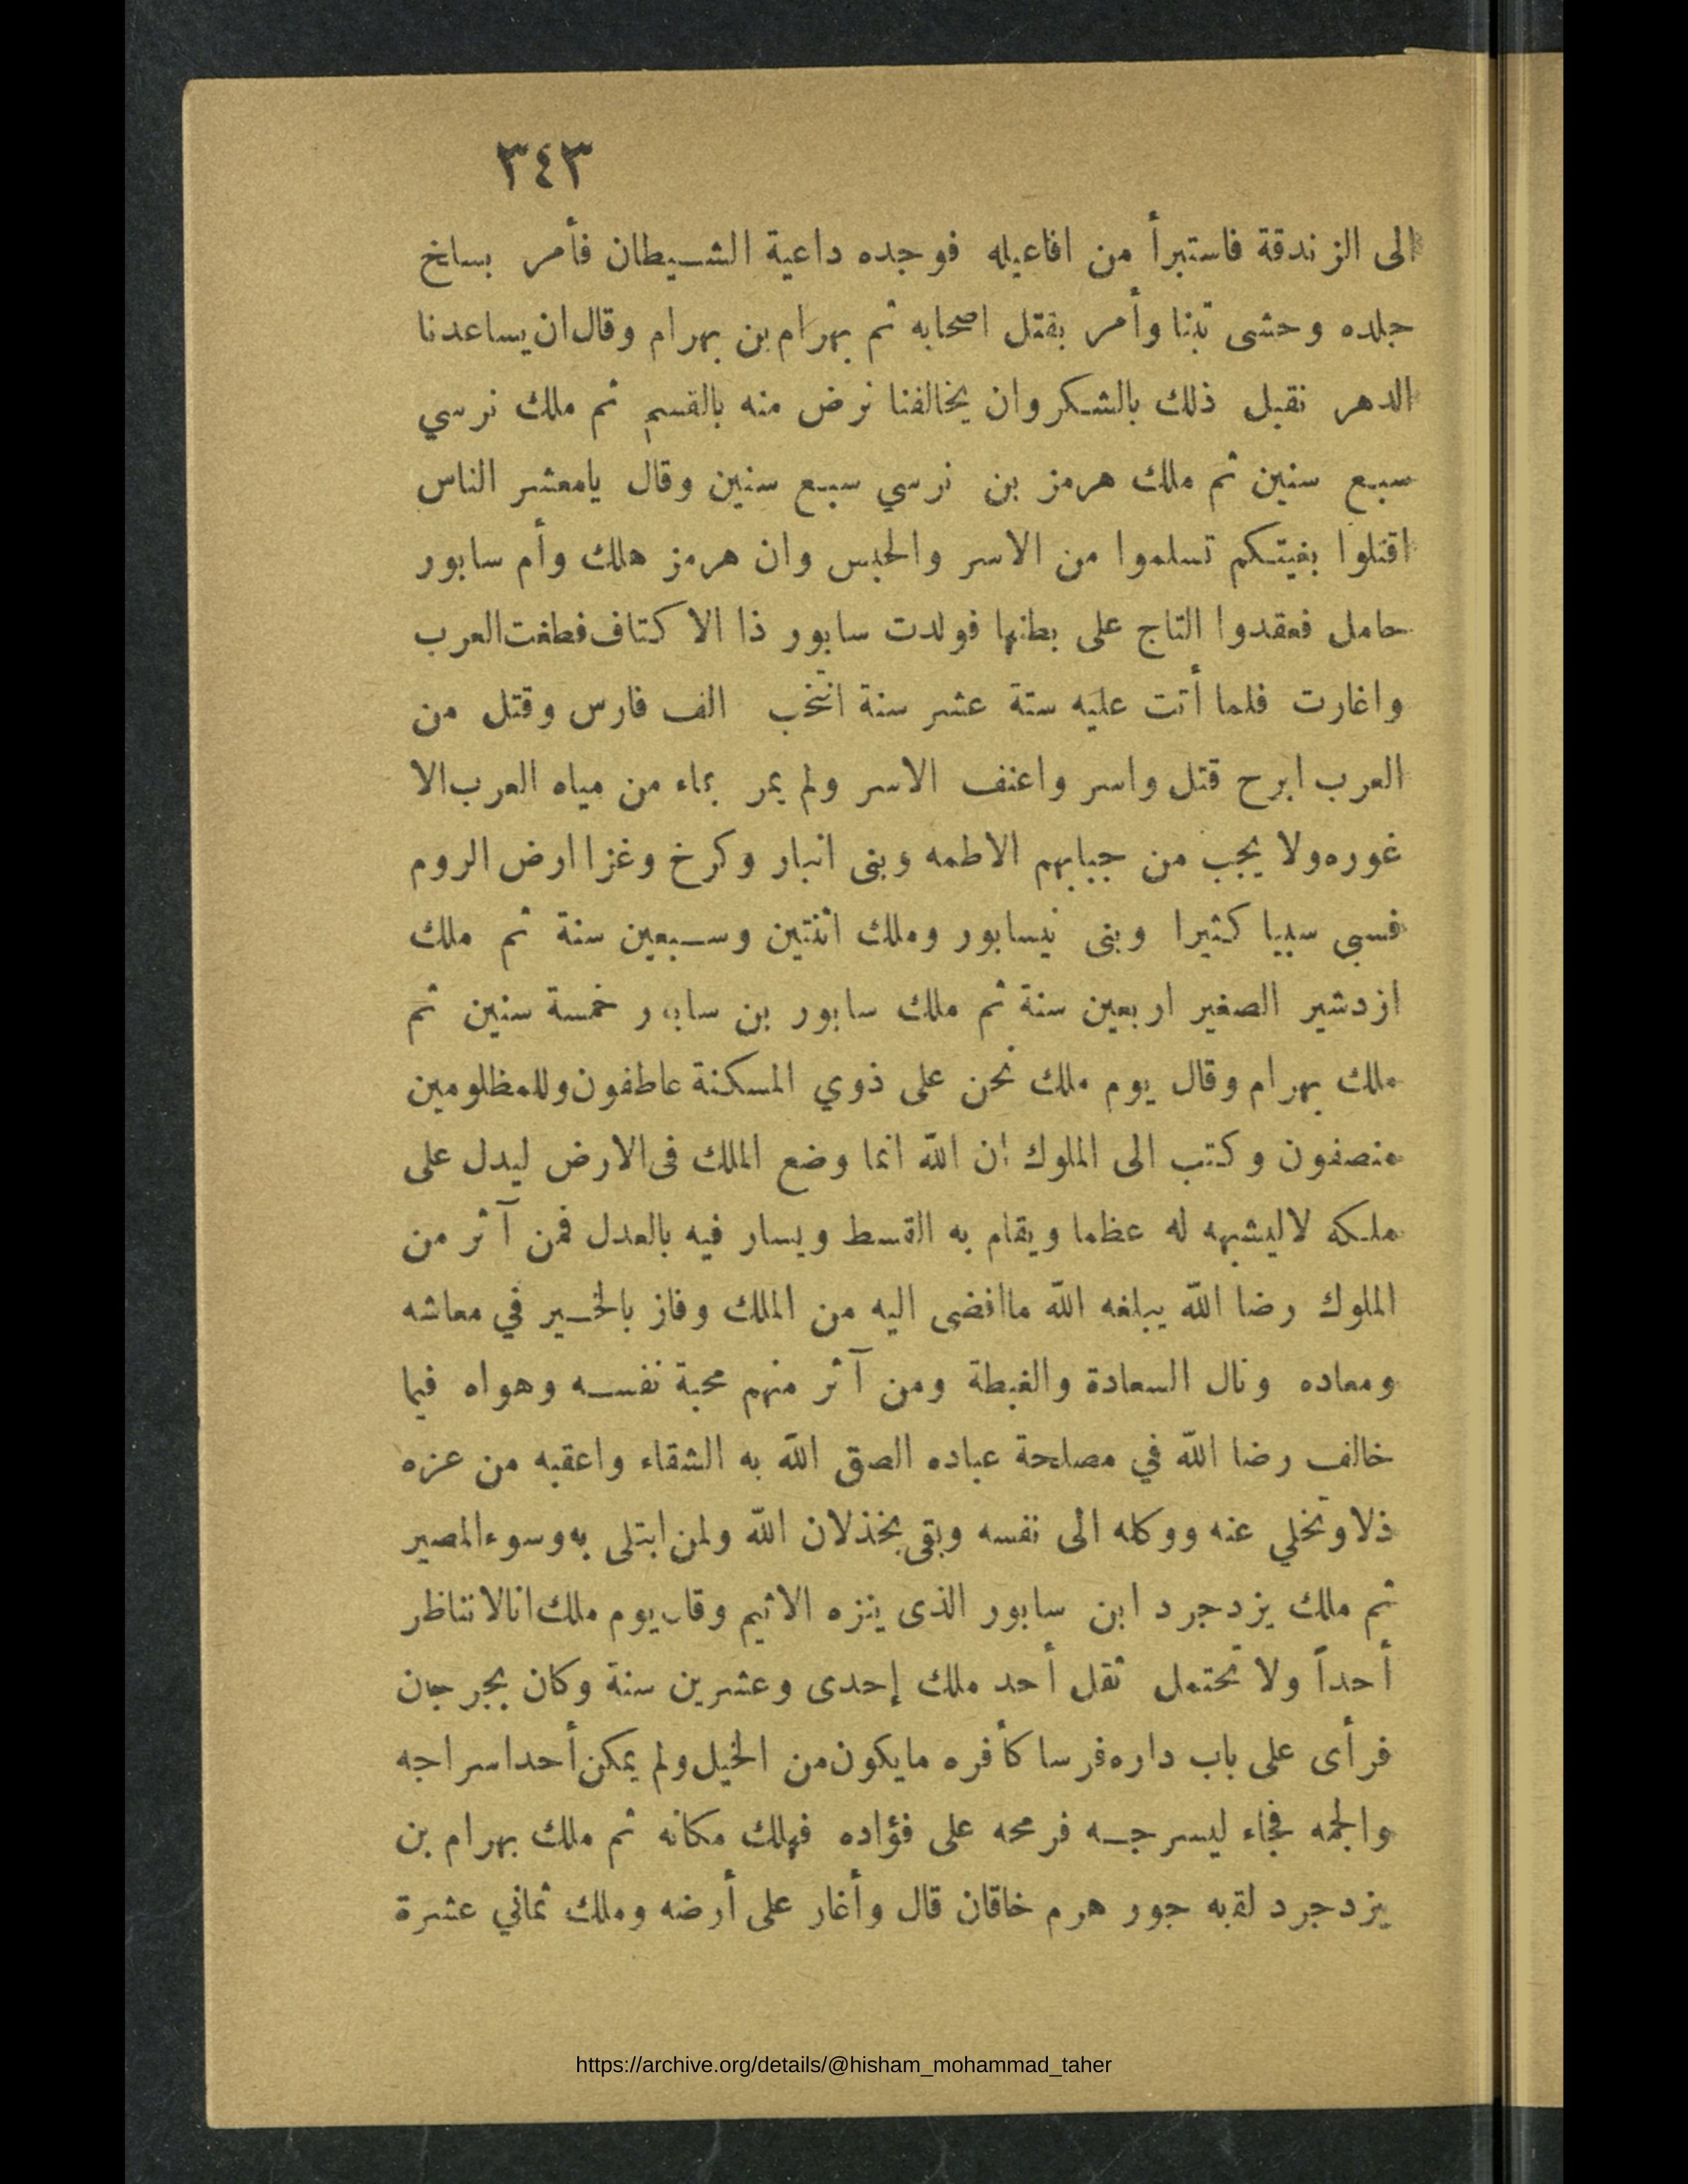 ٣٤٣
الى الزندقة فاستبرأ من افاعيله فوجده داعية الشيطان فأمر بسلخ
جلده وحشى تبنا وأمر بقتل اصحابه ثم بهرام بن بهرام وقال ان يساعدنا
الدهر نقبل ذلك بالشكر وان يخالفنا نرض منه بالقسم ثم ملك نرسي
سبع سنين ثم ملك هرمز بن نرسي سبع سنين وقال يامعشر الناس
اقتلوا بغيتكم تسلموا من الاسر والحبس وان هرمز هلك وأم سابور
حامل فعقدوا التاج على بطنها فولدت سابور ذا الاكتاف فطغت العرب
واغارت فلما أتت عليه ستة عشر سنة انتخب الف فارس وقتل من
العرب ابرح قتل واسر واعنف الاسر ولم يمر بماء من مياه العرب الا
غوره ولا يجب من جبابهم الاطمه وبنى انبار وكرخ وغزا ارض الروم
فسبى سبيا كثيرا وبنى نيسابور وملك اثنتين وسبعين سنة ثم ملك
ازدشير الصغير اربعين سنة ثم ملك سابور بن سابور خمسة سنين ثم
ملك بهرام وقال يوم ملك نحن على ذوي المسكنة عاطفون وللمظلومين
منصفون وكتب الى الملوك ان الله انما وضع الملك فى الارض ليدل على
ملكه لاليشبهه له عظما ويقام به القسط ويسار فيه بالعدل فمن آثر من
الملوك رضا الله يبلغه الله ماافضى اليه من الملك وفاز بالخير في معاشه
ومعاده ونال السعادة والغبطة ومن آثر منهم محبة نفسه وهواه فيما
خالف رضا الله في مصلحة عباده الصق الله به الشقاء واعقبه من عزه
ذلا وتخلي عنه ووكله الى نفسه وبقى بخذلان الله ولمن ابتلى به وسوء المصير
ثم ملك يزدجرد ابن سابور الذى ينزه الاثيم وقال يوم ملك انا لا نناظر
أحداً ولا نحتمل ثقل أحد ملك إحدى وعشرين سنة وكان بجرجان
فرأى على باب داره فرسا كأفره مايكون من الخيل ولم يمكن أحدا اسراجه
والجمه فجاء ليسرجه فرمحه على فؤاده فهلك مكانه ثم ملك بهرام بن
يزدجرد لقبه جور هرم خاقان قال وأغار على أرضه وملك ثماني عشرة
https://archive.org/details/@hisham_mohammad_taher